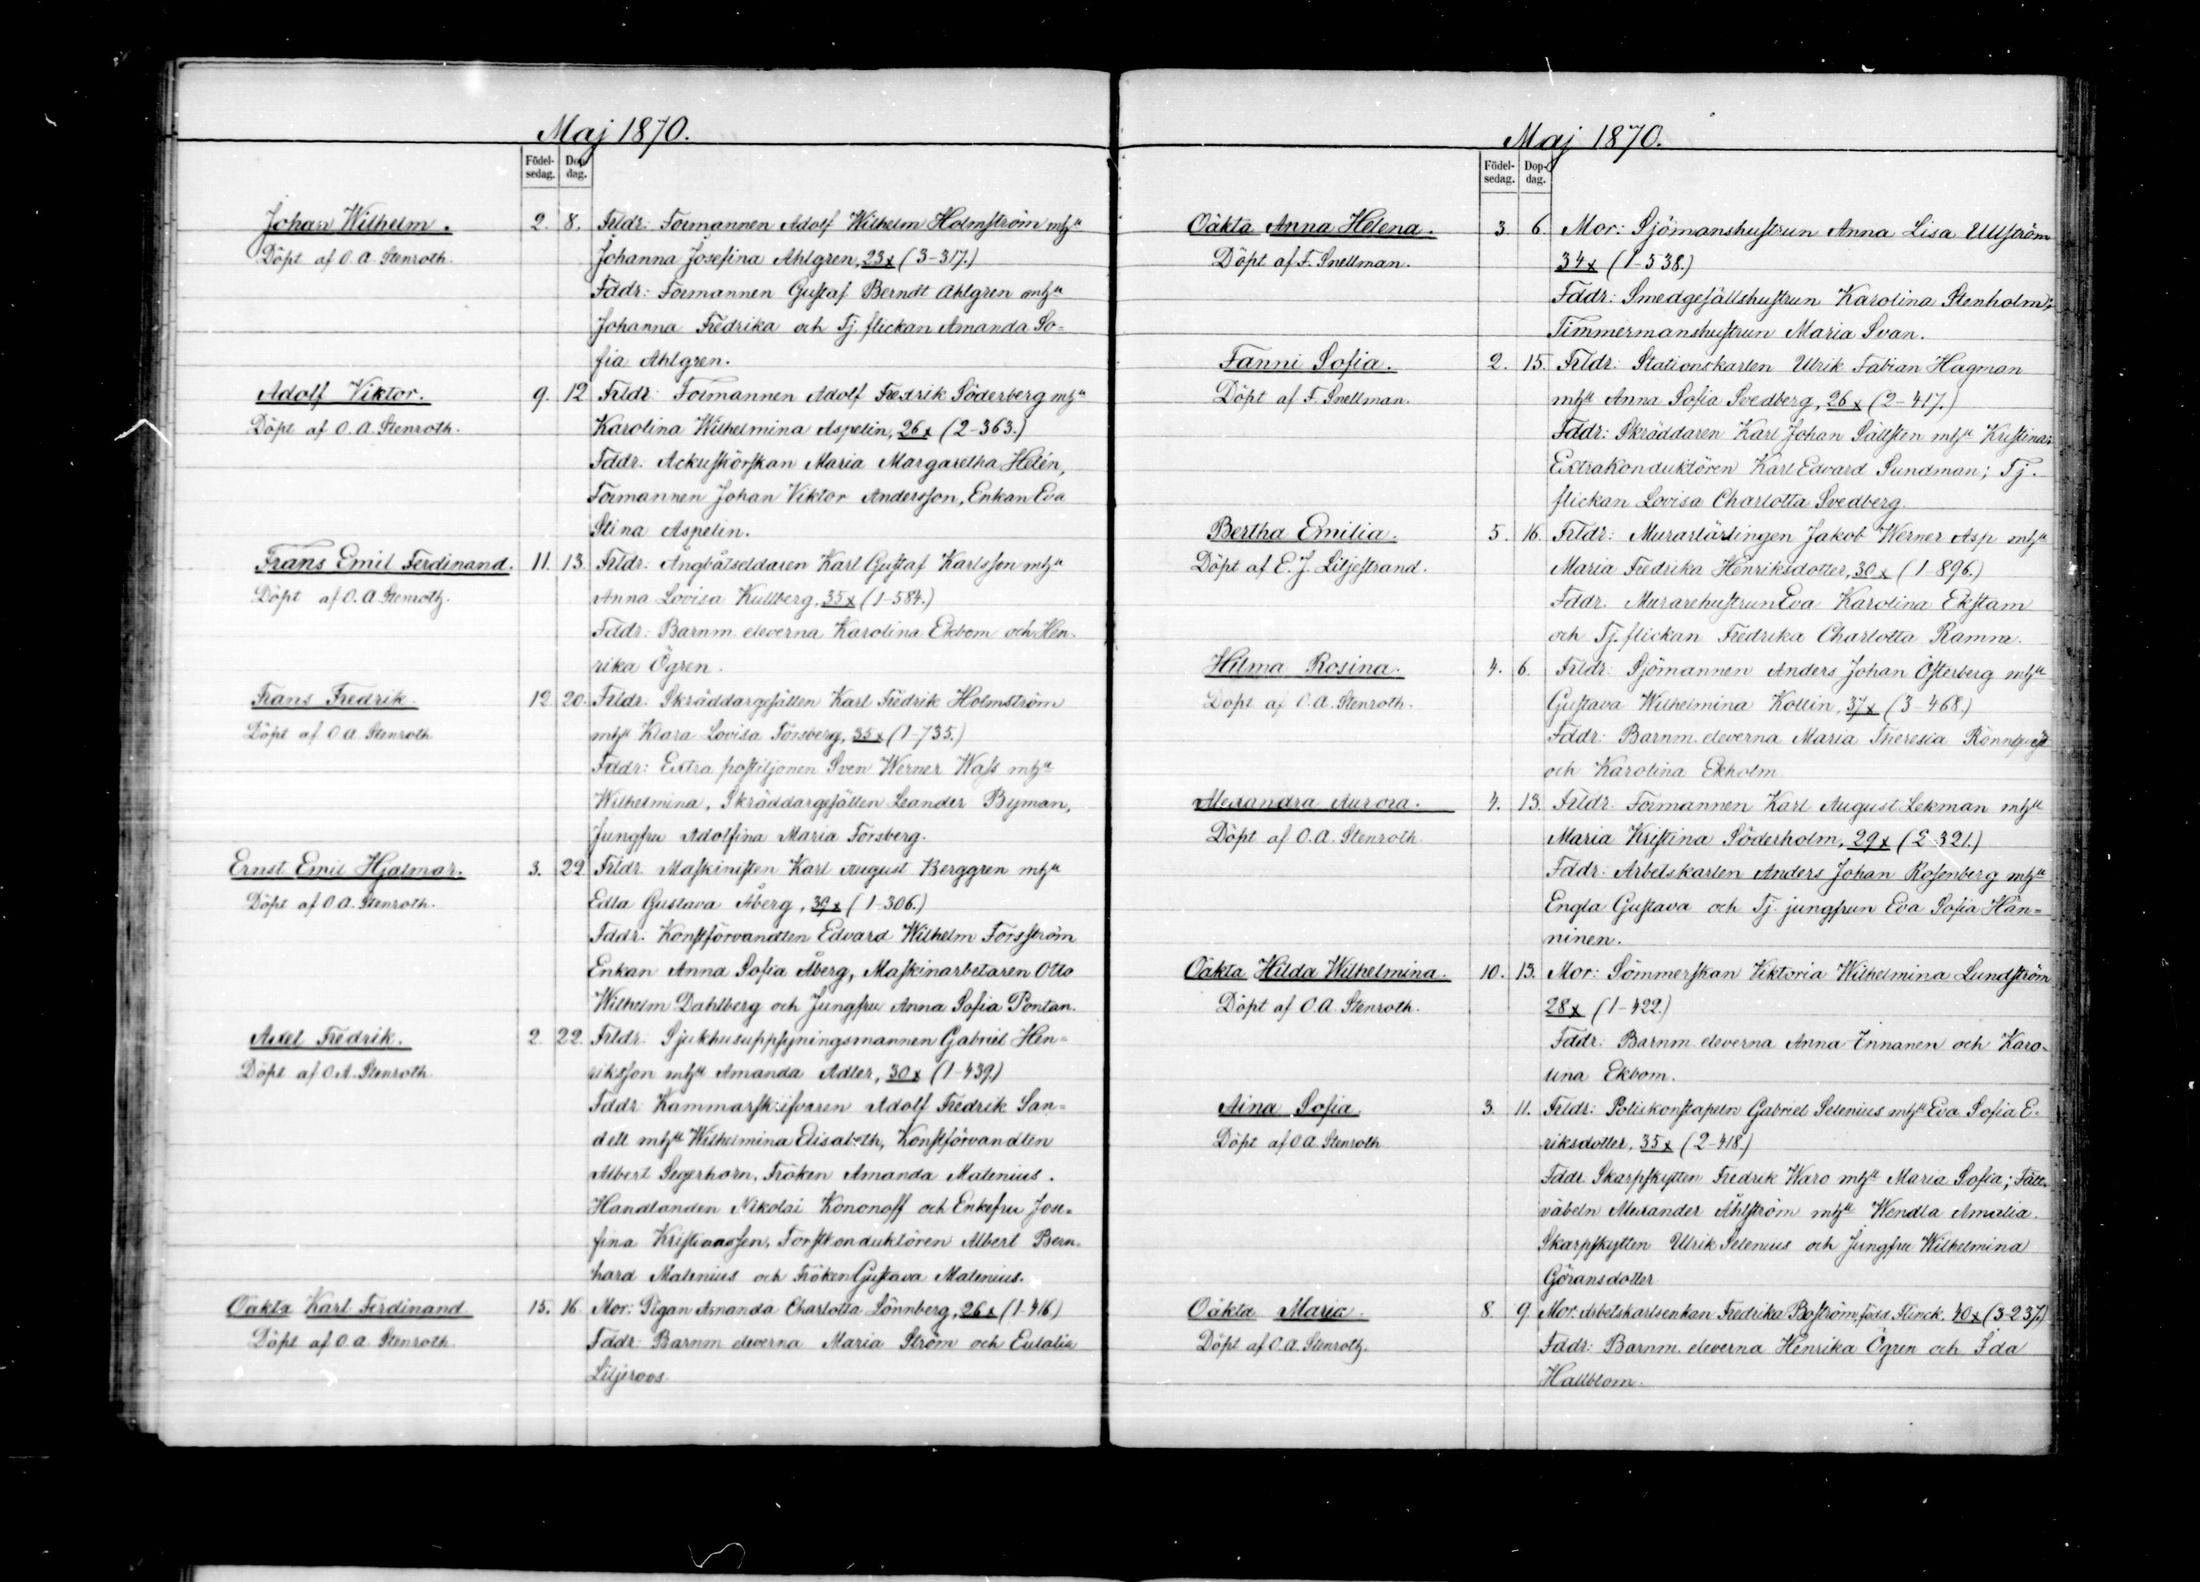 Maj 1870.
Födel-
sedag.
Dop
dag.
Johan Wilhelm. 2. 8. Frldr: Formannen Adolf Wilhelm Holmström mh
Döpt af O. A. Stenroth. Johanna Josefina Ahlgren, 23x (3-317.)
Fddr: Formannen Gustaf Berndt Ahlgren mh
Johanna Fredrika och Tj. flickan Amanda So-
fia Ahlgren.
Adolf Viktor. 9. 12 Frldr: Formannen Adolf Fredrik Söderberg mh
Döpt af O. A. Stenroth. Karolina Wilhelmina Aspelin, 26x (2-363.)
Fddr: Ackuskörskan Maria Margaretha Helén,
Formannen Johan Viktor Andersson, Enkan Eva
Stina Aspelin.
Frans Emil Ferdinand. 11. 13. Frldr: Ångbåtseldaren Karl Gustaf Karlsson mh
Döpt af O. A. Stenroth. Anna Lovisa Kullberg, 35x (1-584.)
Fddr: Barnm. eleverna Karolina Ekbom och Hen-
rika Ögren.
Frans Fredrik. 12 20. Frldr: Skräddargesällen Karl Fredrik Holmström
Döpt af O. A. Stenroth mh Klara Lovisa Forsberg, 35x (1-735.)
Fddr: Extra postiljonen Sven Werner Wass mh
Wilhelmina, Skräddargesällen Leander Byman,
Jungfru Adolfina Maria Forsberg.
Ernst Emil Hjalmar. 3. 22 Frldr: Maskinisten Karl August Berggren mh
Döpt af O. A. Stenroth. Edla Gustava Åberg, 39x (1-306.)
Fddr: Konstförvandten Edvard Wilhelm Forsström
Enkan Anna Sofia Åberg, Maskinarbetaren Otto
Wilhelm Dahlberg och Jungfru Anna Sofia Pontan.
Axel Fredrik. 2. 22. Frldr: Sjukhusuppsyningsmannen Gabriel Hen-
Döpt af O. A. Stenroth. riksson mh Amanda Adler, 30x (1-439.)
Fddr: Kammarskrifvaren Adolf Fredrik San-
dell mh Wilhelmina Elisabeth, Konstförvandten
Albert Segerhorn, Fröken Amanda Malenius.
Handlanden Nikolai Kononoff och Enkefru Jose-
fina Kristianssen, Forstkonduktören Albert Bern-
hard Malenius och Fröken Gustava Malenius.
Oäkta Karl Ferdinand 15. 16. Mor: Pigan Amanda Charlotta Lönnberg, 26x (1-416)
Döpt af O. A. Stenroth. Fddr: Barnm. eleverna Maria Ström och Eulalia
Liljeroos.
Maj 1870.
Födel-
sedag.
Dop-
dag.
Oäkta Anna Helena. 3. 6. Mor: Sjömanshustrun Anna Lisa Ullström
Döpt af F. Snellman. 34x (1-538.)
Fddr: Smedgesällshustrun Karolina Stenholm;
Timmermanshustrun Maria Svan.
Fanni Sofia. 2. 15. Frldr: Stationskarlen Ulrik Fabian Hagman
Döpt af F. Snellman. mh Anna Sofia Svedberg, 26x (2-417.)
Fddr: Skräddaren Karl Johan Sällsten mh Kristina;
Extrakonduktören Karl Edvard Sundman; Tj.
flickan Lovisa Charlotta Svedberg.
Bertha Emilia. 5. 16. Frldr: Murarlärlingen Jakob Werner Asp mh
Döpt af E. J. Liljestrand. Maria Fredrika Henriksdotter, 30x (1-896.)
Fddr. Murarehustrun Eva Karolina Ekstam
och Tj. flickan Fredrika Charlotta Ramm.
Hilma Rosina. 4. 6. Frldr: Sjömannen Anders Johan Österberg mh
Döpt af O. A. Stenroth. Gustava Wilhelmina Kollin, 37x (3-468.)
Fddr: Barnm. eleverna Maria Theresia Rönnqvist
och Karolina Ekholm
Alexandra Aurora. 4. 13. Frldr: Formannen Karl August Lekman mh
Döpt af O. A. Stenroth. Maria Kristina Söderholm, 29x (2-321.)
Fddr: Arbetskarlen Anders Johan Rosenberg mh
Engla Gustava och Tj. jungfrun Eva Sofia Hän-
ninen.
Oäkta Hilda Wilhelmina. 10. 13. Mor: Sömmerskan Viktoria Wilhelmina Lundström
Döpt af O. A. Stenroth. 28x (1-422.)
Fddr: Barnm. eleverna Anna Innanen och Karo-
lina Ekbom.
Aina Sofia. 3. 11. Frldr: Poliskonstapeln Gabriel Selenius mh Eva Sofia E-
Döpt af O. A. Stenroth riksdotter, 35x (2-418.)
Fddr. Skarpskytten Fredrik Waro mh Maria Sofia; Fält-
väbeln Alexander Åhlström mh Wendla Amalia.
Skarpskytten Ulrik Selenius och Jungfru Wilhelmina
Göransdotter
Oäkta Maria. 8. 9. Mor. Arbetskarlsenkan Fredrika Boström, född Flinck, 40x (3-237.)
Döpt af O. A. Stenroth. Fddr: Barnm. eleverna Henrika Ögren och Ida
Hallblom.